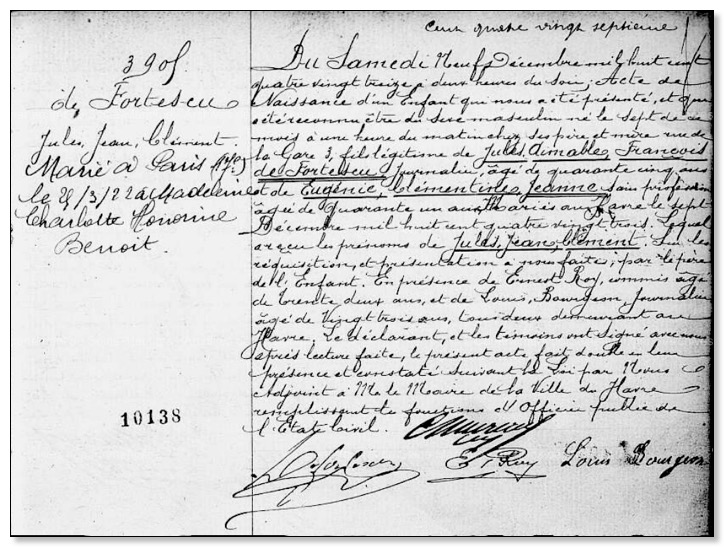 cent quatre vingt septième
3905
de Fortescu
Jules, Jean, Clément
Marié à Paris
le 25/3/22 à Madeleine
Charlotte Honorine
Benoit.
Du Samedi Neuf Décembre mil huit cent
quatre vingt treize à deux heures du soir, Acte de
Naissance d'un Enfant qui nous a été présenté, et que
a été reconnu être du sexe masculin né le sept de ce
mois à une heure du matin chez ses père et mère rue de
la Gare 3, fils légitime de Jules, Aimable, François
de Fortescu Journalier, âgé de quarante cinq ans
et de Eugénie, Clémentine, Jeanne sans profession
âgée de quarante un ans, Mariés au Havre le sept
Décembre mil huit cent quatre vingt trois. Lequel
a reçu les prénoms de Jules, Jean, Clément. Sur la
réquisition, et présentation à nous faite, par le père
de l'Enfant. En présence de Ernest Roy, commis âgé
de trente deux ans, et de Louis, Bourgeon, Journalier
âgé de Vingt trois ans, tous deux demeurant au
Havre, Le déclarant, et les témoins ont signé avec nous
après lecture faite, le présent acte fait double en leur
présence et constaté suivant la Loi par Nous
Adjoint à Mr le Maire de la Ville du Havre
remplissant les fonctions d'Officier public de
l'Etat Civil.
10138
E. Roy Louis Bourgeon